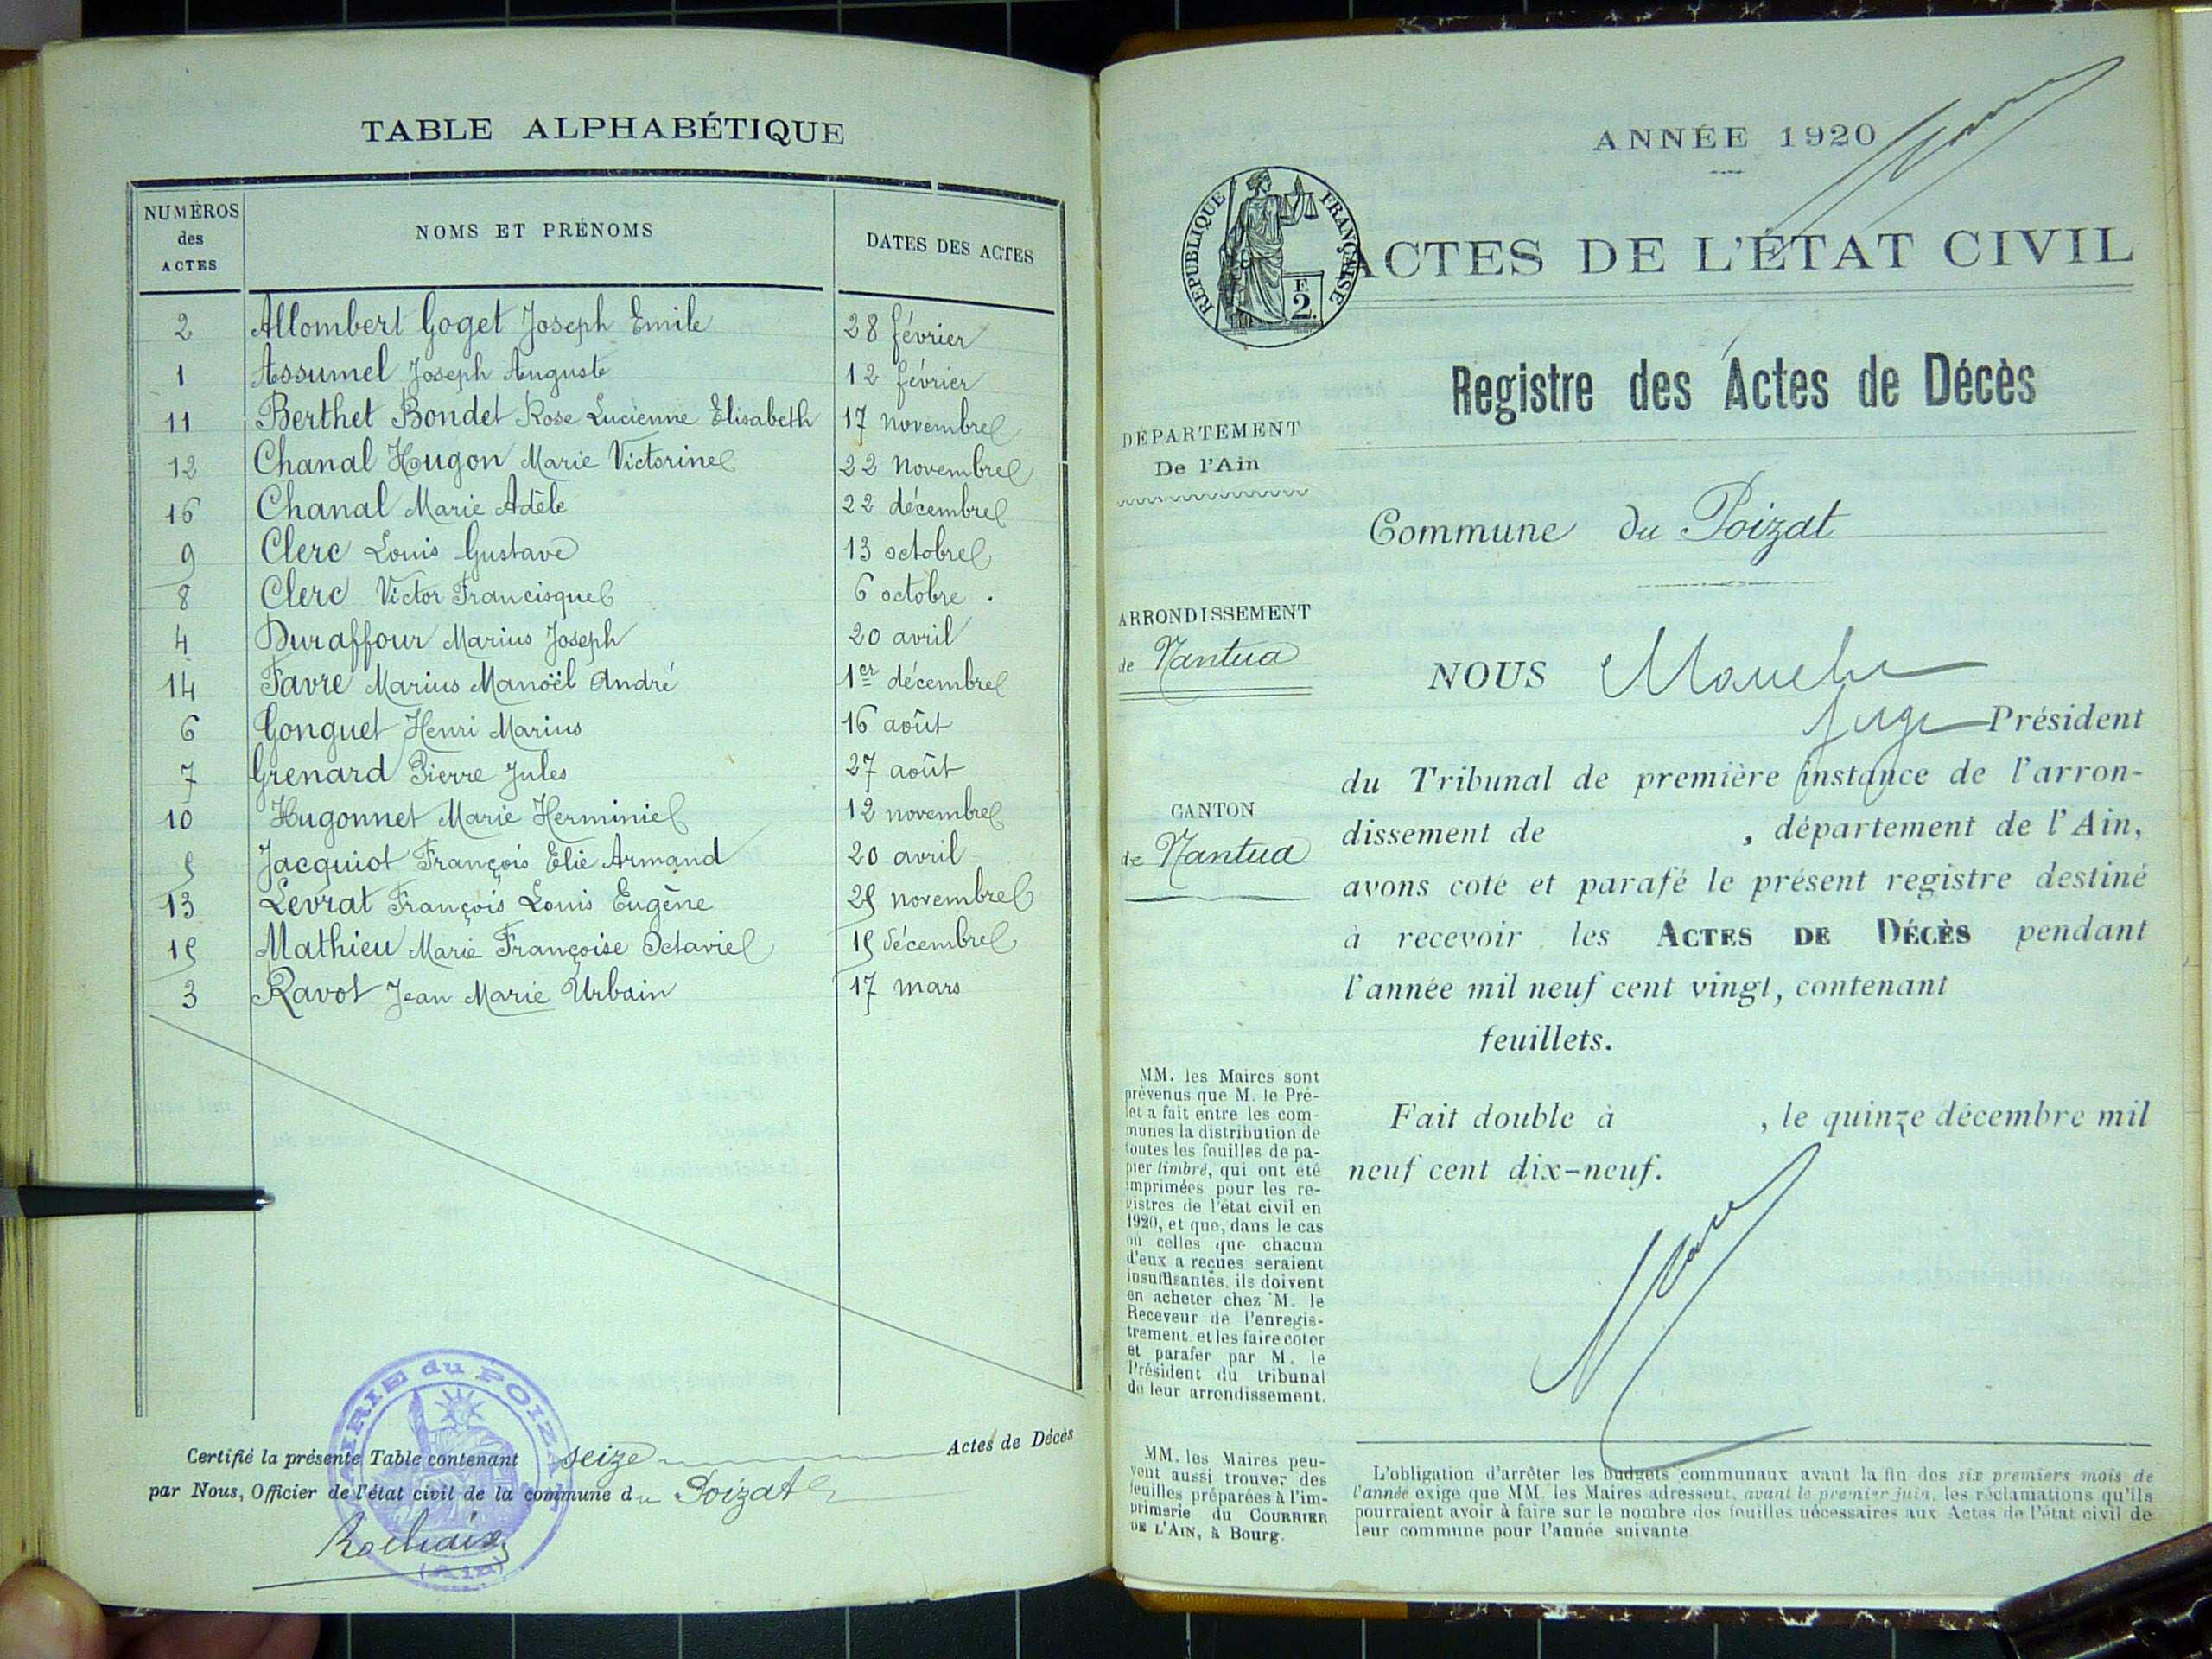 TABLE ALPHABÉTIQUE
NUMÉROS
des
ACTES
NOMS ET PRÉNOMS
DATES DES ACTES
2 Allombert Goget Joseph Emile 28 février
1 Assumel Joseph Auguste 12 février
11 Berthet Bondet Rose Lucienne Elisabeth 17 novembre
12 Chanal Hougon Marie Victorine 22 novembre
16 Chanal Marie Adèle 22 décembre
9 Clerc Louis Gustave 13 octobre
8 Clerc Victor Francisque 6 octobre .
4 Duraffour Marius Joseph 20 avril
14 Favre Marius Manoël André 1er décembre
6 Gonguet Henri Marius 16 août
7 Grenard Pierre Jules 27 août
10 Hugonnet Marie Herminie 12 novembre
5 Jacquiot François Elie Armand 20 avril
13 Levrat François Louis Eugène 25 novembre
15 Mathieu Marie Françoise Octavie 15 décembre
3 Ravot Jean Marie Urbain 17 mars
MAIRIE du POIZAT
(AIN)
Certifié la présente Table contenant seize Actes de Décès
par Nous, Officier de l'état civil de la commune du Poizat
ANNÉE 1920
RÉPUBLIQUE FRANÇAISE
F.
2.
ACTES DE L'ÉTAT CIVIL
Registre des Actes de Décès
DÉPARTEMENT
De l'Ain
Commune du Poizat
ARRONDISSEMENT
de Nantua
CANTON
de Nantua
NOUS
juge Président
du Tribunal de première instance de l'arron-
dissement de , département de l'Ain,
avons coté et parafé le présent registre destiné
à recevoir les ACTES DE DÉCÈS pendant
l'année mil neuf cent vingt, contenant
feuillets.
Fait double à , le quinze décembre mil
neuf cent dix-neuf.
MM. les Maires sont
prévenus que M. le Pré-
fet a fait entre les com-
munes la distribution de
toutes les feuilles de pa-
pier timbré, qui ont été
imprimées pour les re-
gistres de l'état civil en
1920, et que, dans le cas
où celles que chacun
d'eux a reçues seraient
insuffisantes, ils doivent
en acheter chez M. le
Receveur de l'enregis-
trement et les faire coter
et parafer par M. le
Président du tribunal
de leur arrondissement.
MM. les Maires peu-
vent aussi trouver des
feuilles préparées à l'im-
primerie du COURRIER
DE L'AIN, à Bourg.
L'obligation d'arrêter les budgets communaux avant la fin des six premiers mois de
l'année exige que MM. les Maires adressent, avant le premier juin, les réclamations qu'ils
pourraient avoir à faire sur le nombre des feuilles nécessaires aux Actes de l'état civil de
leur commune pour l'année suivante